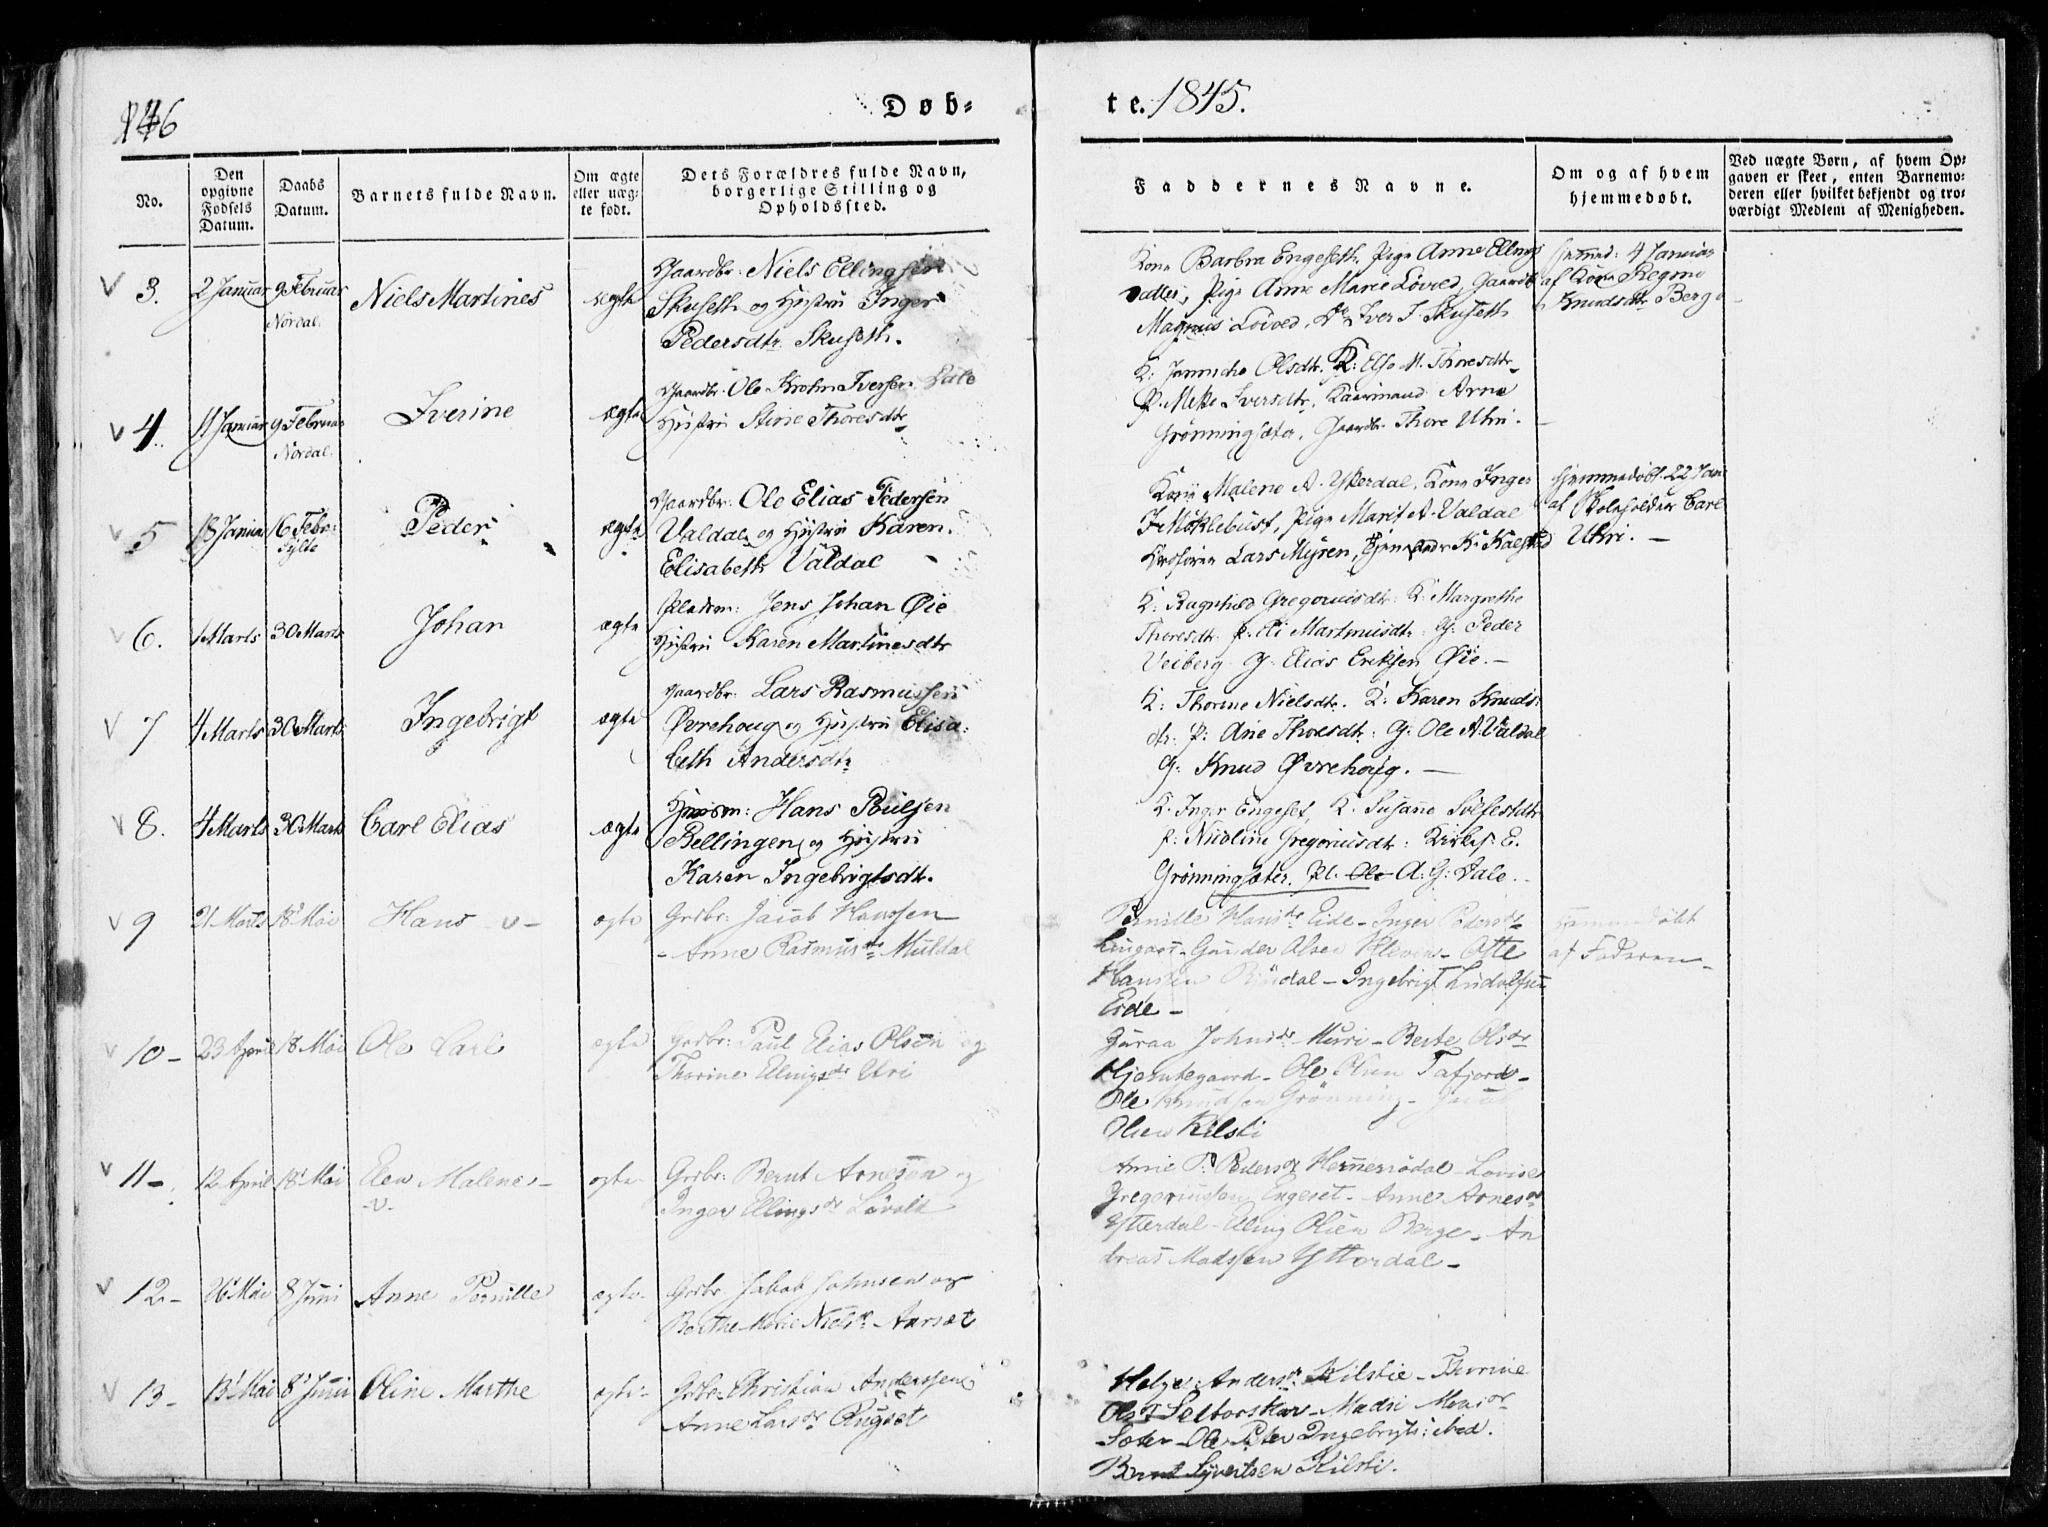 146
Døb-
te. 1845.
No.
Den
opgivne
Fødsels
Datum.
Daabs
Datum.
Barnets fulde Navn.
Om ægte
eller uæg-
te født.
Dets Forældres fulde Navn,
borgerlige Stilling og
Opholdssted.
Faddernes Navne.
Om og af hvem
hjemmedøbt.
Ved uægte Børn, af hvem Op-
gaven er skeet, enten Barnemo-
deren eller hvilket bekjendt og tro-
værdigt Medlem af Menigheden.
3.
2 Januar
9 Februar
Nordal.
Niels Martines
ægte
Gaardbr: Niels Ellingsen
Skuseth og Hustru Inger
Pedersdtr Skuseth.
Kone Barbra Engeseth, Pige Anne Ellings
datter, Pige Anne Marie Lövold, Gaardb
Magnus Lovold, Iver J. Skuseth
4 Januar
af Kone Regine
Knudsdtr Berg
4.
11 Januar
9 Februar
Nordal.
Iverine
ægte
Gaardbr. Ole Krohn Iversen Dale
Hustru Stine Thoresdtr
K: Jannicke Olsdtr. K: Else M. Thoresdtr
P. Mette Iversdtr. Kaarmand Arne
Grønningsæter. Gaardbr. Thore Uhri.
5
18 Januar
16 Febr.
Sylte
Peder
ægte
Gaardbr: Ole Elias Pedersen
Valdal og Hustru Karen
Elisabeth Valdal
Kone Malene A. Ytterdal, Kone Inger
J. Mæklebust, Pige Marit A. Valdal
Lars Myren, K. Kalstad
Hjemmedøbt 22 Jan
af Skoleholder Carl
Uhri.
6.
1 Marts
30 Marts
Johan
ægte
Pladsm: Jens Johan Øie
Hustru Karen Martinesdtr
K: Ragnhild Gregoriusdtr: K: Margrethe
Thoresdtr. P. Martinusdtr: G: Peder
Veiberg. G: Elias Eriksen Øie.
7
4 Marts
30 Marts
Ingebrigt
ægte
Gaardbr: Lars Rasmussen
Øvrehoug og Hustru Elisa-
beth Andersdtr
K: Thorine Nielsdtr. K: Karen Knuds-
dtr. P: Ane Thoresdtr: G: Ole A. Valdal
G: Knud Øvrehoug.
8.
4 Marts
30 Marts
Carl Elias
ægte
Huusm: Hans Poulsen
Bellingen og Hustru
Karen Ingebrigtsdtr.
K. Inger Engeset, K. Susane Sylfestdtr
P: Nicoline Gregoriusdtr: Kirkes. E.
Grønningsæter. Pl. Ole A. G: Dale.
9
21 Marts
18 Mai
Hans
ægte
Grdbr: Jacob Hanssen
Anne Rasmusdtr Muldal
Pernille Hansdtr Eide - Inger Pedersdtr
Gunder Olsen - Otte
Hanssen - Ingebrigt Ludolfsen
Eide
Hjemmedøbt
af Faderen
10
23 April
18 Mai
Ole Carl
ægte
Grdbr: Paul Elias Olsen og
Thorine Ellingsdr Uri
Guraa Johnsdr Muri - Berte Olsdr
Hjemtegaard - Ole Olsen Tafjord
Ole Knudsen Grønning - Jacob
Olsen Kilsti
11
12 April
18 Mai
Elen Malene
ægte
Grdbr: Bernt Arnesen og
Inger Ellingsdr Løvolt
Anne P. Pedersdr - Lovise
Gregoriusdtr Engeset - Anne Arnesdr
Ytterdal - Elling Olsen Berge - An
dreas Madssen Ytterdal
12
26 Mai
8 Juni
Anne Pernille
ægte
Grdbr. Jakob Johnsen og
Berthe Marie Nielsdr Aarset
13
13 Mai
8 Juni
Oline Marthe
ægte
Grdbr Christian Anderssen
Anne Larsdr Rugset
Helge Andersdr. Kilstie - Thorine
Olsdr Selboskar - Madsi Monsdr
Sæter - Ole Peter Ingebrigts: ibed.
Bernt Syvertsen Kilsti.